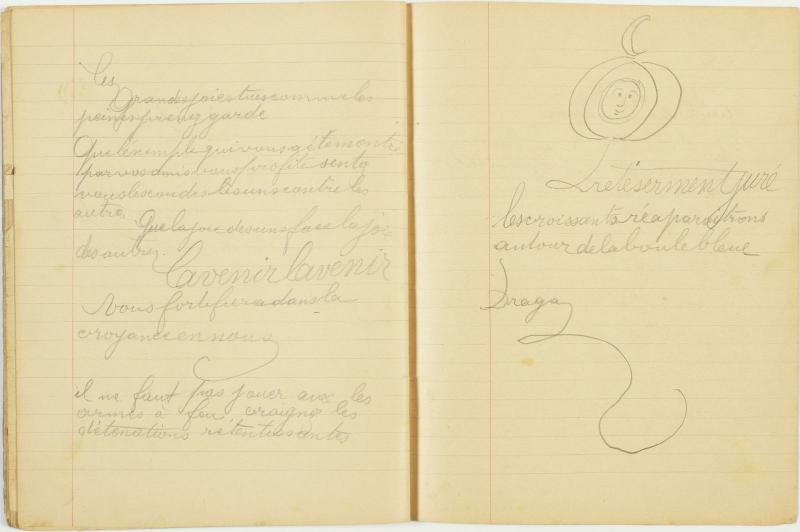 Les
grandsjoiestuescommeles
peinesprenezgarde
Quel'exemplequivousaétémontré
parvosamisvousprofite sento
vouslescoudeslesunscontreles
autres
Quelajoiedesunsfasselajoie
desautres
L'avenir L'avenir
Vousfortifieradansla
croyanceennous
il ne faut pas jouer avec les
armes à feu craignez les
détonations retentissantes
sermentjuré
lescroissantsréaparaitrons
autourdelabouleblueue
Draga